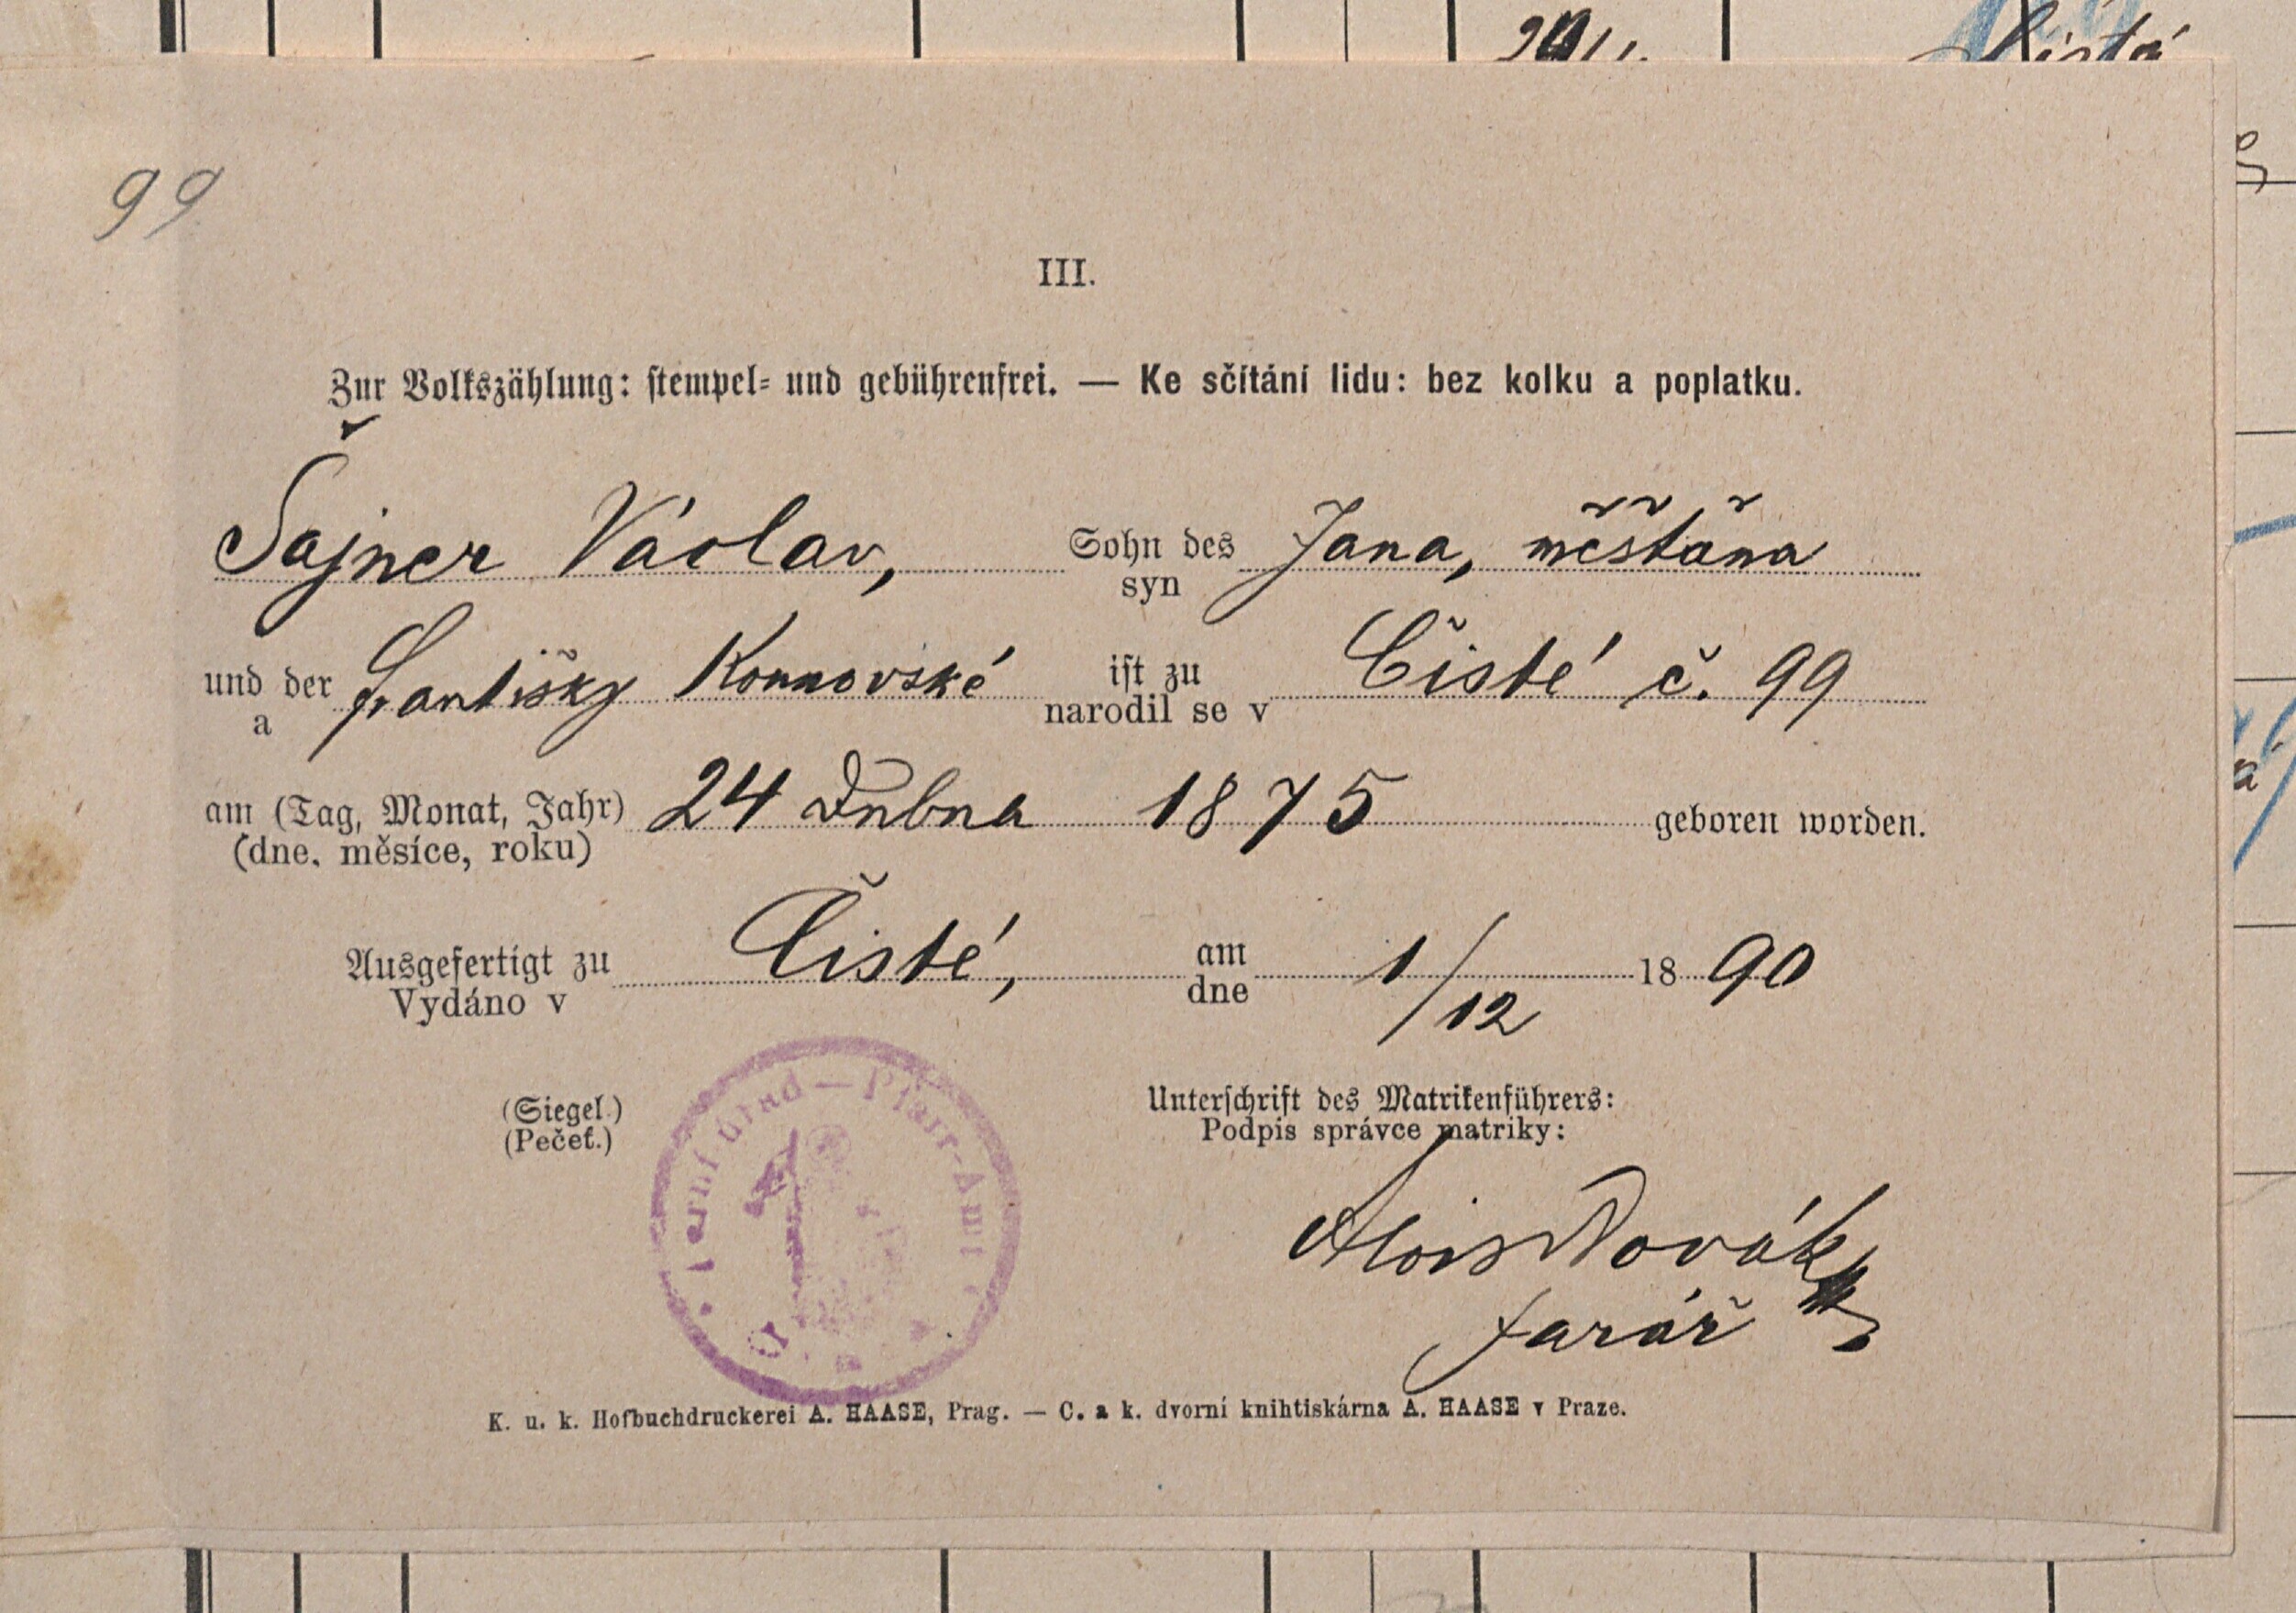 9011.
Čistá
99
III.
Zur Volkszählung: stempel- und gebührenfrei. — Ke sčítání lidu: bez kolku a poplatku.
Šajner Václav, Sohn des Jana, měšťana
syn
und der Františky Konnovské ist zu Čisté č. 99
a narodil se v
am (Tag, Monat, Jahr) 24 Dubna 1875 geboren worden.
(dne, měsíce, roku)
Ausgefertigt zu Čisté, am 1/12 1890
Vydáno v dne
(Siegel.) Unterschrift des Matrikenführers:
(Pečeť.) Podpis správce matriky:
úřad — Pfarr-Amt
Alois Novák
farář
K. u. k. Hofbuchdruckerei A. HAASE, Prag. — C. a k. dvorní knihtiskárna A. HAASE v Praze.